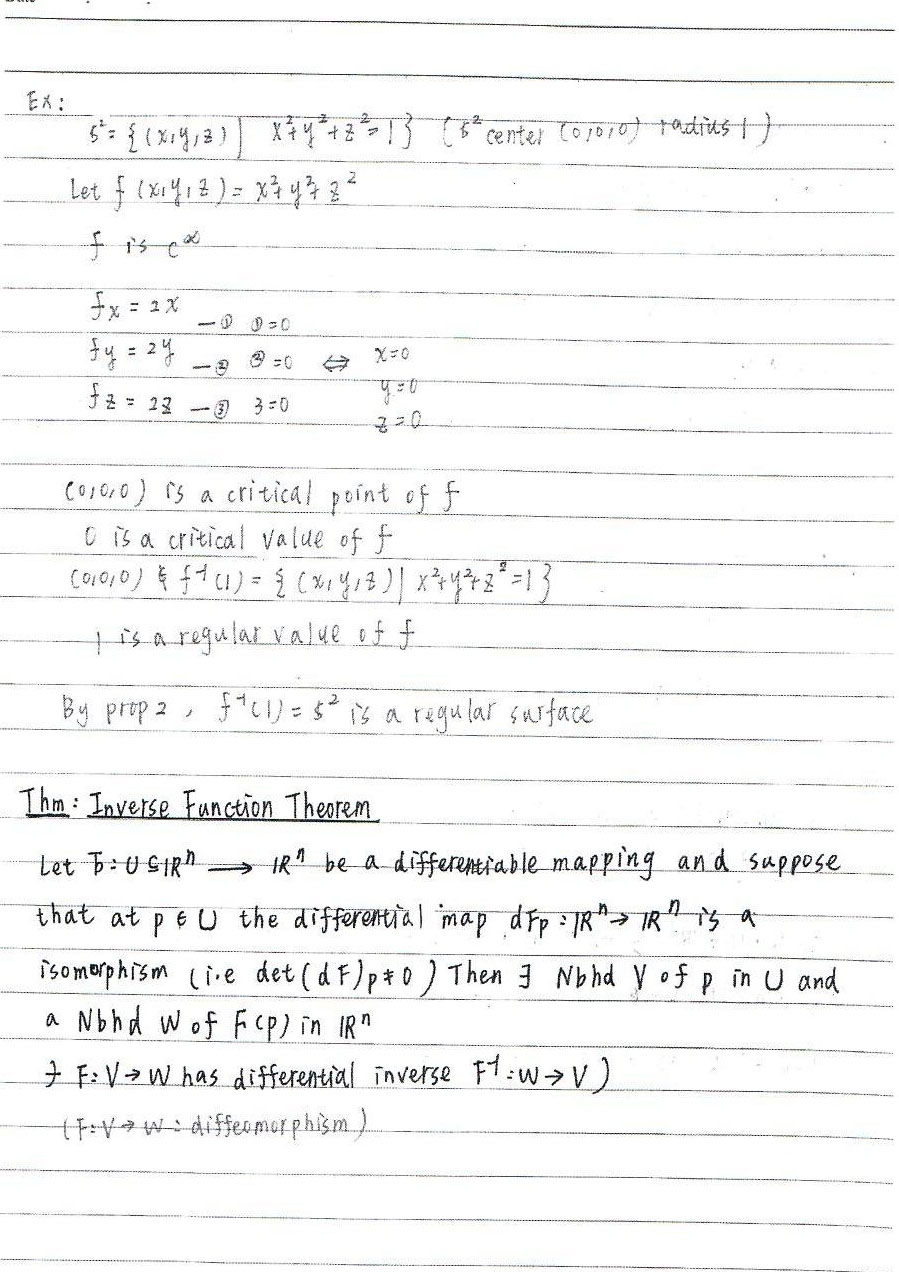 Ex:
S² = {(x,y,z) | x²+y²+z²=1} (S² center (0,0,0) radius 1)
Let f (x,y,z) = x²+y²+z²
f is C^∞
fx = 2x —① ①=0
fy = 2y —② ②=0 ⇔ x=0
y=0
fz = 2z —③ 3=0
z=0
(0,0,0) is a critical point of f
0 is a critical value of f
(0,0,0) ∉ f⁻¹(1) = {(x,y,z) | x²+y²+z²=1}
1 is a regular value of f
By prop 2, f⁻¹(1) = S² is a regular surface
Thm: Inverse Function Theorem
Let F: U ⊆ ℝⁿ ⟶ ℝⁿ be a differentiable mapping and suppose
that at p ∈ U the differential map dFp: ℝⁿ → ℝⁿ is a
isomorphism (i.e det(dF)p ≠ 0) Then ∃ Nbhd V of p in U and
a Nbhd W of F(p) in ℝⁿ
∋ F: V → W has differential inverse F⁻¹: W → V)
(F: V → W : diffeomorphism)